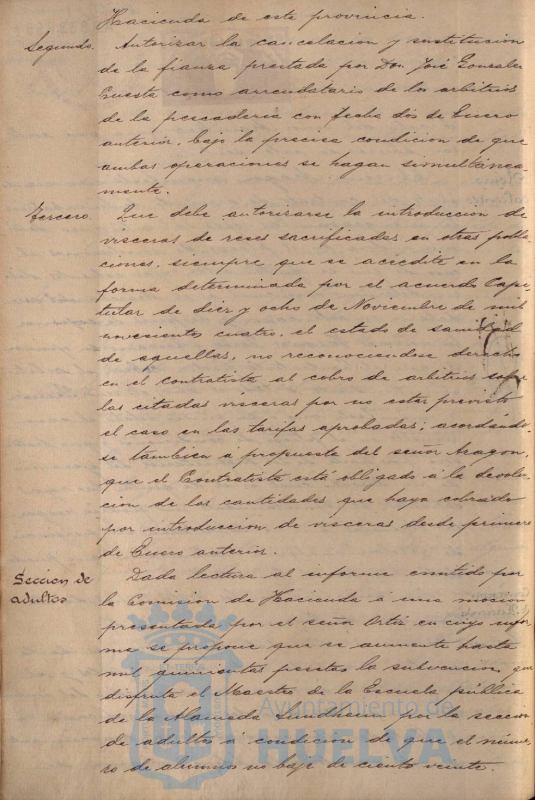 Hacienda de esta provincia.
Segundo. Autorizar la cancelacion y sustitucion
de la fianza prestada por Don José Gonzalez
Cuesta como arrendatario de los arbitrios
de la pescadería con fecha dos de Enero
anterior, bajo la precisa condicion de que
ambas operaciones se hagan simultánea
mente.
Tercero. Que debe autorizarse la introduccion de
vísceras de reses sacrificadas en otras pobla
ciones, siempre que se acredite en la
forma determinada por el acuerdo Capi
tular de diez y ocho de Noviembre de mil
novecientos cuatro, el estado de sanidad
de aquellas, no reconociendose derecho
en el contratista al cobro de arbitrios sobre
las citadas vísceras por no estar previsto
el caso en las tarifas aprobadas; acordándo
se tambien á propuesta del señor Aragon,
que el Contratista está obligado á la devolu
cion de las cantidades que haya cobrado
por introduccion de vísceras desde primero
de Enero anterior.
Seccion de
adultos
Dada lectura al informe emitido por
la Comision de Hacienda á una mocion
presentada por el señor Ortiz en cuyo infor
me se propone que se aumente hasta
mil quinientas pesetas la subvencion que
disfruta el Maestro de la Escuela pública
de la Alameda Sundheim por la seccion
de adultos á condicion de que el núme
ro de alumnos no baje de ciento veinte.
Ayuntamiento de
HUELVA